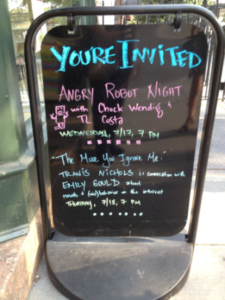 YOU'RE INVITED
ANGRY ROBOT NIGHT
with Chuck Wendig &
TL Costa
WEDNESDAY, 7/17, 7 PM
"The More You Ignore Me"
TRAVIS NICHOLS in conversation with
EMILY GOULD about
bad behavior on the internet
Thursday, 7/18, 7 PM